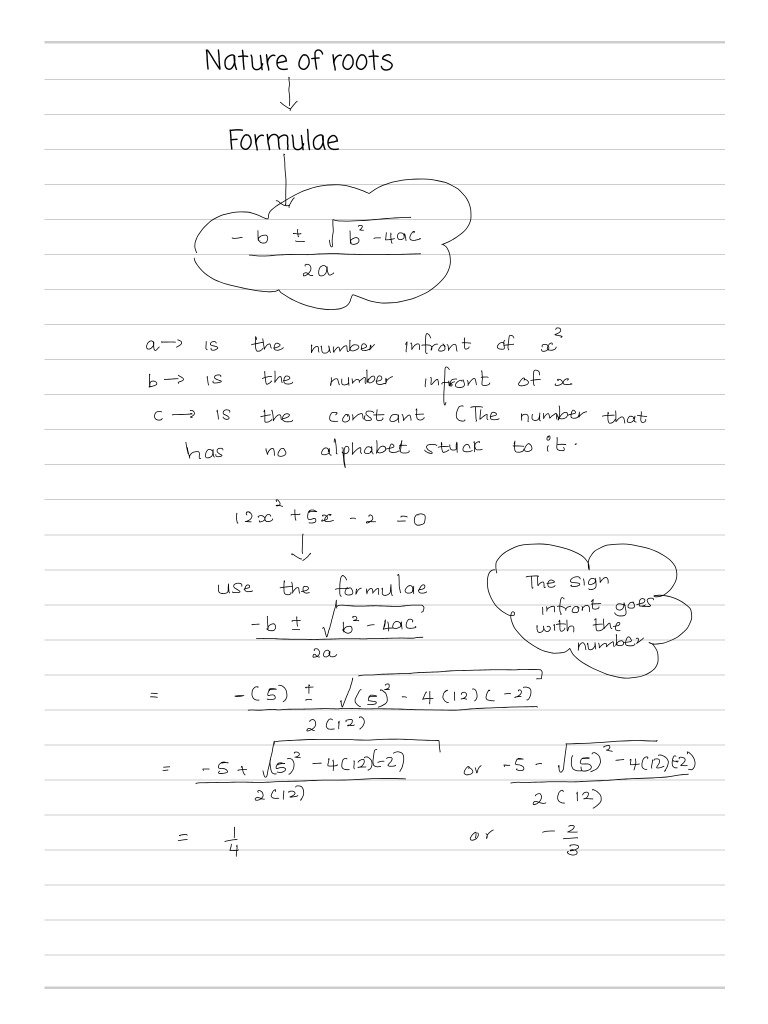 Nature of roots
Formulae
- b ± √b² - 4ac
2a
a → is the number infront of x²
b → is the number infront of x
c → is the constant (The number that
has no alphabet stuck to it.
12x² + 5x - 2 = 0
use the formulae
-b ± √b² - 4ac
2a
The sign
infront goes
with the
number
= -(5) ± √(5)² - 4(12)(-2)
2(12)
= -5 + √(5)² - 4(12)(-2) or -5 - √(5)² - 4(12)(-2)
2(12) 2(12)
= 1/4 or - 2/3